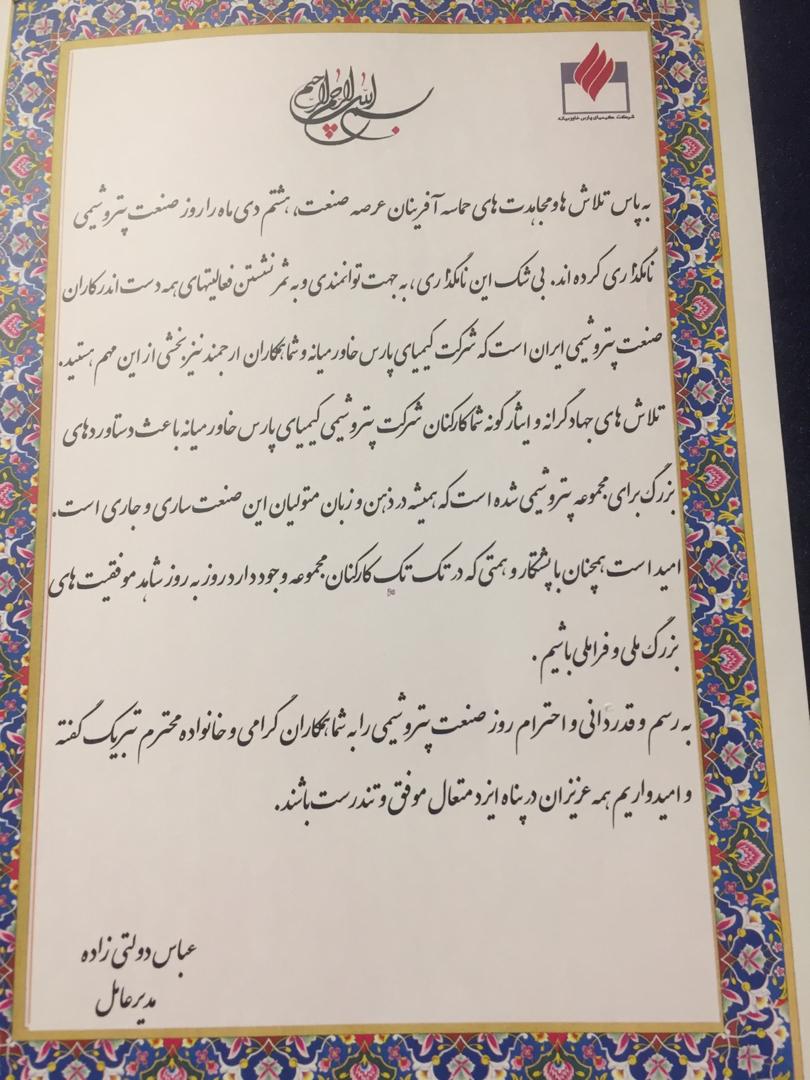 بسم الله الرحمن الرحیم
شرکت کیمیای پارس خاورمیانه
به پاس تلاش ها و مجاهدت های حماسه آفرینان عرصه صنعت، هشتم دی ماه را روز صنعت پتروشیمی
نامگذاری کرده اند. بی شک این نامگذاری، به جهت توانمندی و به ثمر نشستن فعالیتهای همه دست اندرکاران
صنعت پتروشیمی ایران است که شرکت کیمیای پارس خاورمیانه و شما همکاران ارجمند نیز بخشی از این مهم هستید.
تلاش های جهادگرانه و ایثارگونه شما کارکنان شرکت پتروشیمی کیمیای پارس خاورمیانه باعث دستاوردهای
بزرگ برای مجموعه پتروشیمی شده است که همیشه در ذهن و زبان متولیان این صنعت ساری و جاری است.
امید است همچنان با پشتکار و همتی که در تک تک کارکنان مجموعه وجود دارد روز به روز شاهد موفقیت های
بزرگ ملی و فراملی باشیم .
به رسم و قدردانی و احترام روز صنعت پتروشیمی را به شما همکاران گرامی و خانواده محترم تبریک گفته
و امیدواریم همه عزیزان در پناه ایزد متعال موفق و تندرست باشند.
عباس دولتی زاده
مدیرعامل